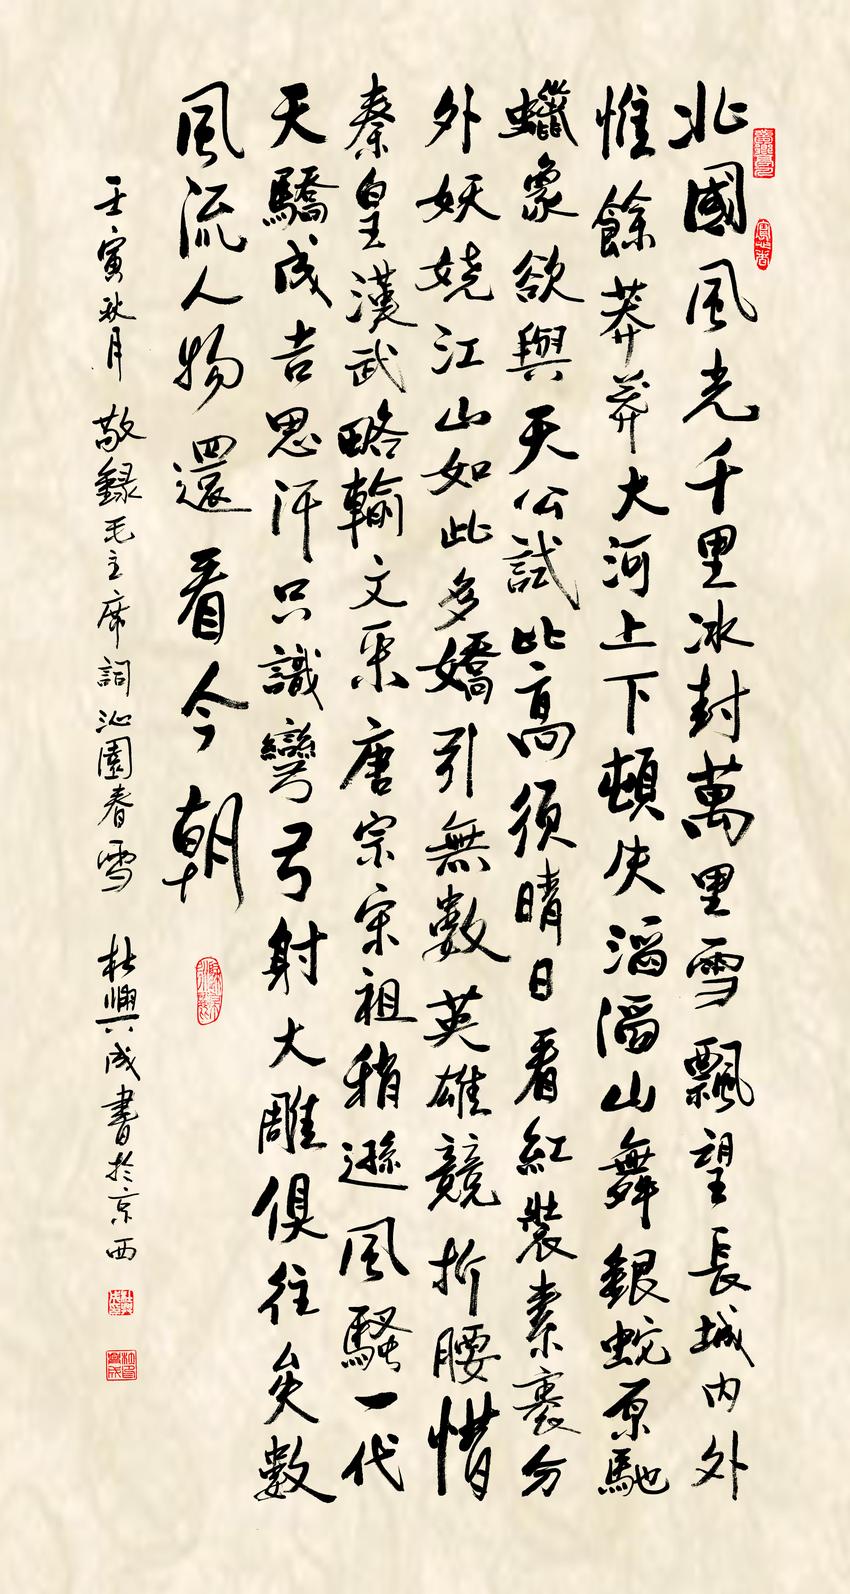 北國風光千里冰封萬里雪飄望長城內外
惟餘莽莽大河上下頓失滔滔山舞銀蛇原馳
蠟象欲與天公試比高須晴日看紅裝素裹分
外妖嬈江山如此多嬌引無數英雄競折腰惜
秦皇漢武略輸文采唐宗宋祖稍遜風騷一代
天驕成吉思汗只識彎弓射大雕俱往矣數
風流人物還看今朝
壬寅秋月 敬錄毛主席詞沁園春雪 杜興成書於京西